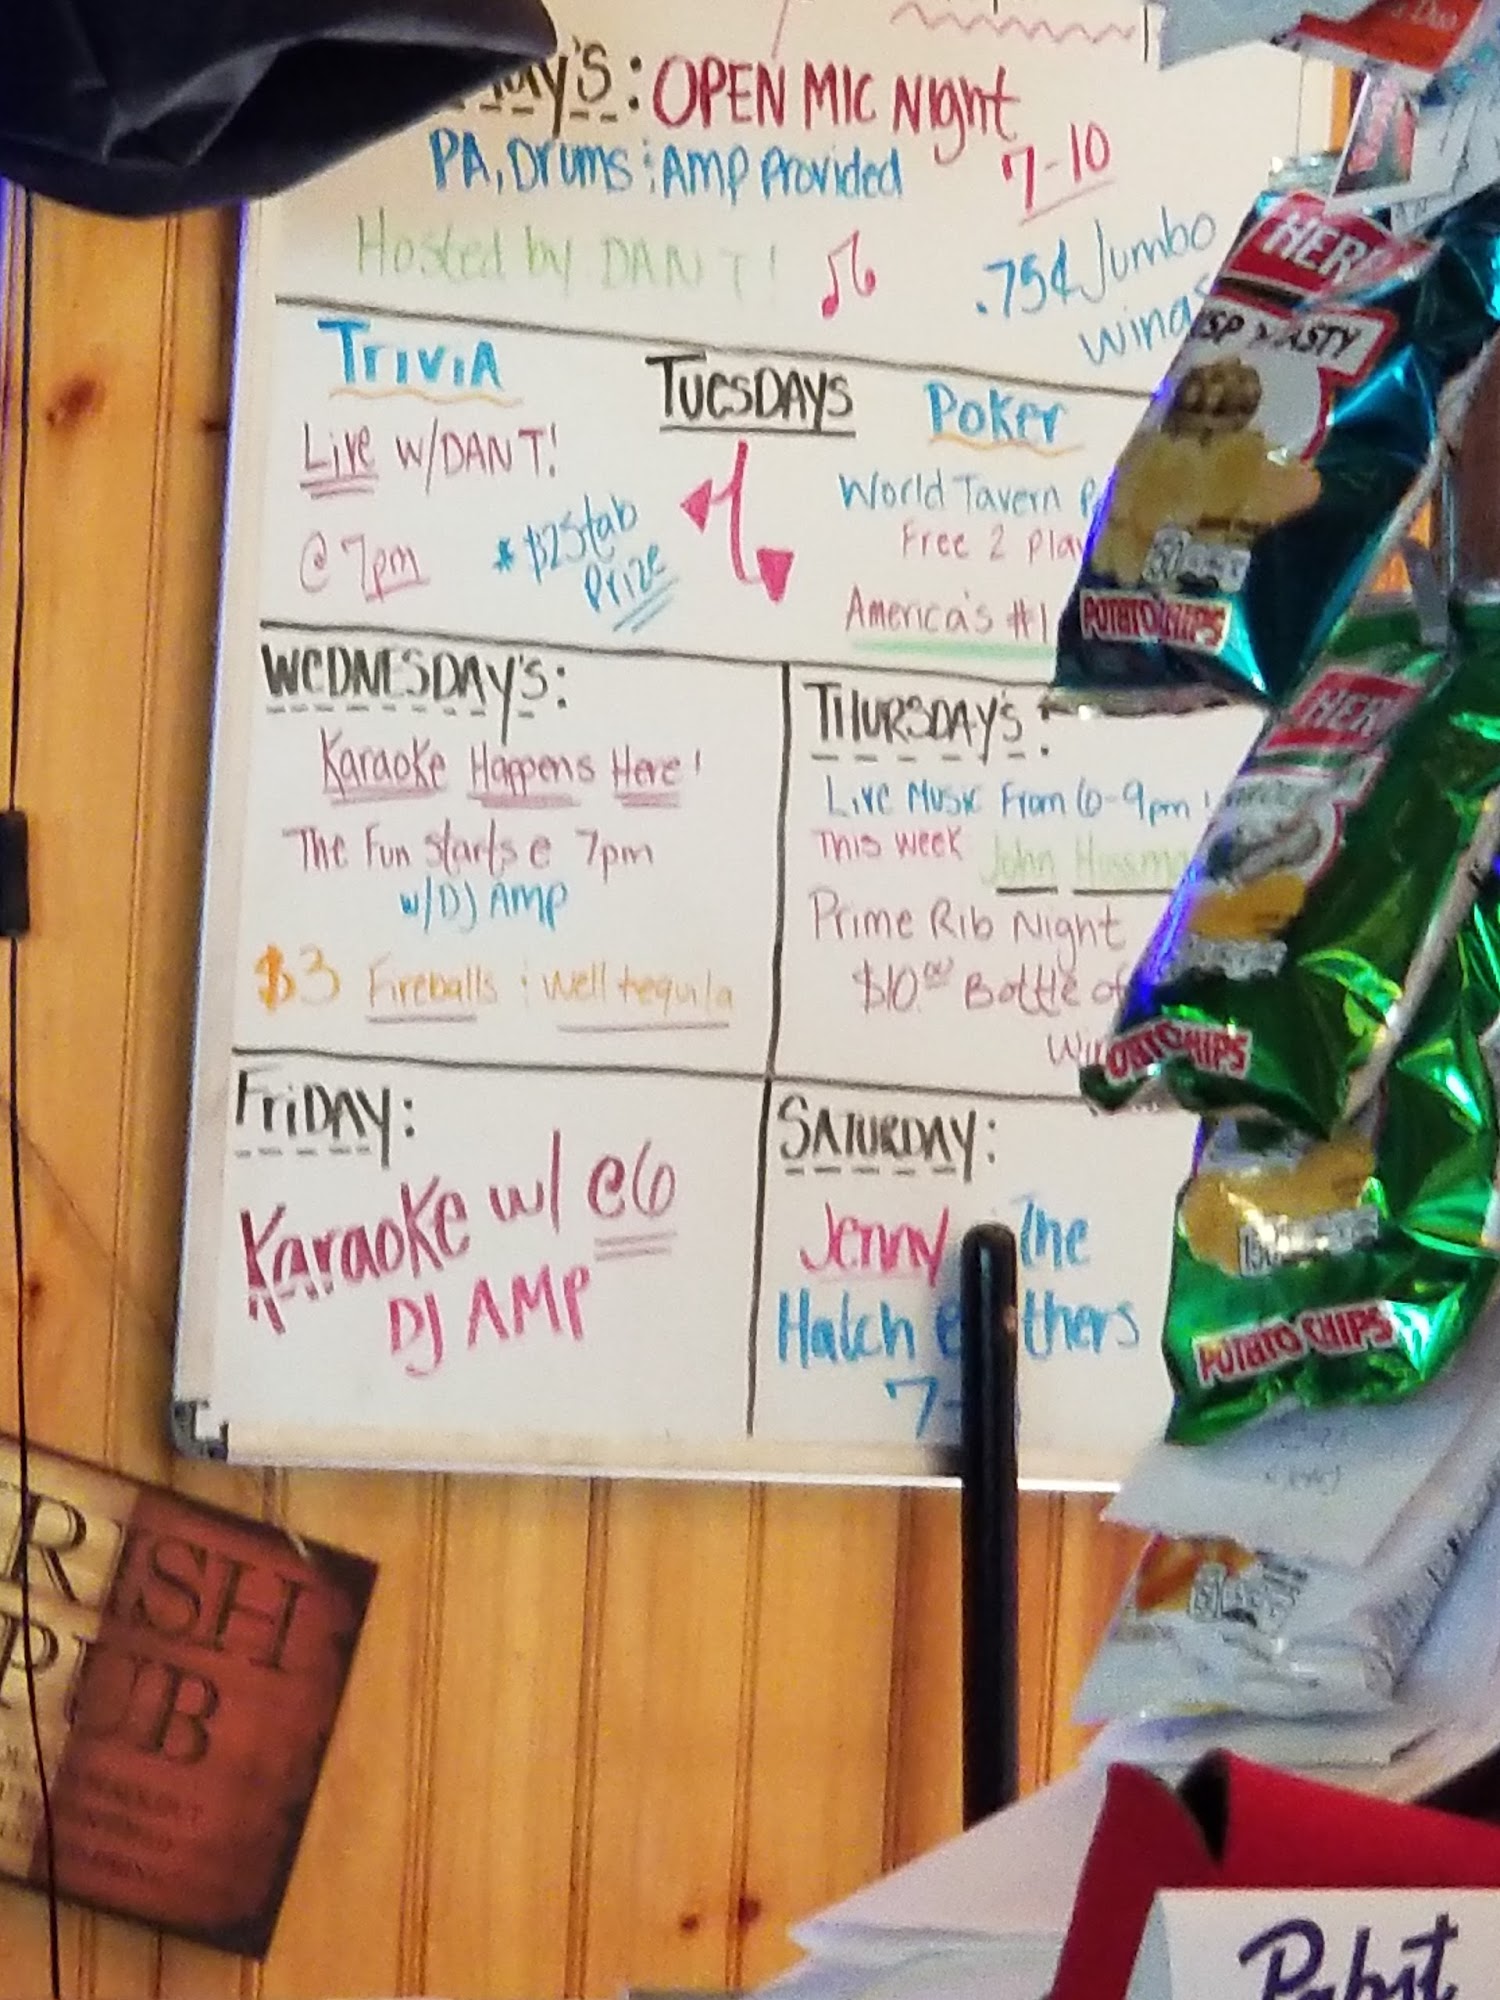 OPEN MIC Night
PA, Drums & AMP Provided
7-10
Hosted by DAN T!
.75¢ Jumbo
wings
TRIVIA
TUESDAYS
Poker
Live w/DAN T!
World Tavern
@ 7pm
* $25 tab
Prize
Free 2 Play
America's #1
WEDNESDAY'S:
Karaoke Happens Here!
The Fun starts @ 7pm
w/DJ AMP
$3 Fireballs & well tequila
THURSDAY'S:
Live Music From 6-9pm!
This week John
Prime Rib Night
$10.00 Bottle of
FRIDAY:
Karaoke w/
DJ AMP
@6
SATURDAY:
Jenny The
Hatch
7-
HERR
POTATO CHIPS
HERR
POTATO CHIPS
POTATO CHIPS
IRISH
PUB
Pabst